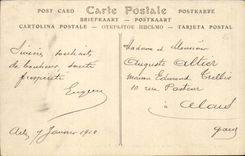 POST CARD Carte Postale POSTKARTE
BRIEFKAART — POSTKAART
CARTOLINA POSTALE — ОТКРЫТОЕ ПИСЬМО — TARJETA POSTAL
Madame et Monsieur
Auguste
Maison Edmond
10 rue Pasteur
à Alais
Gard
Sincères souhaits
de bonheur, santé
prospérité
Eugène
7 Janvier 1910